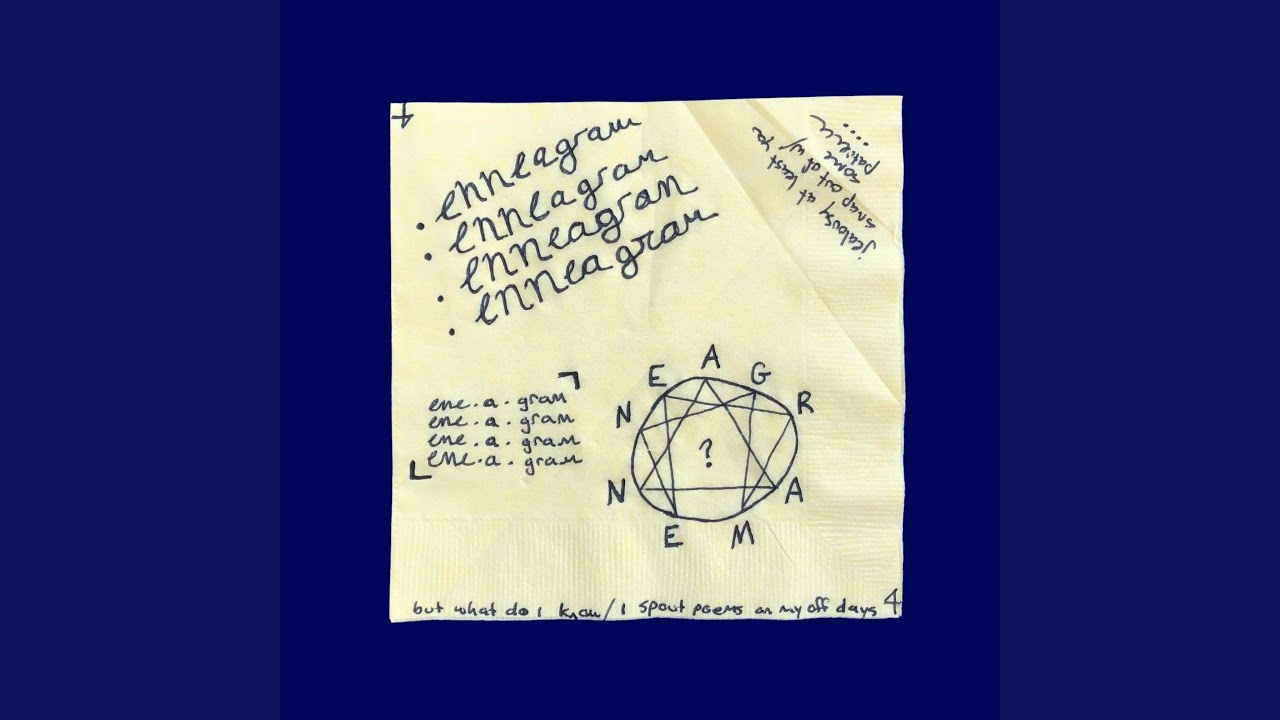 4
. enneagram
. enneagram
. enneagram
. enneagram
jealousy at least
snap out of w/ ya
some
patience
....
ene.a.gram
ene.a.gram
ene.a.gram
ene.a.gram
A
E G
N R
?
N A
E M
but what do i know/i spout poems on my off days
4